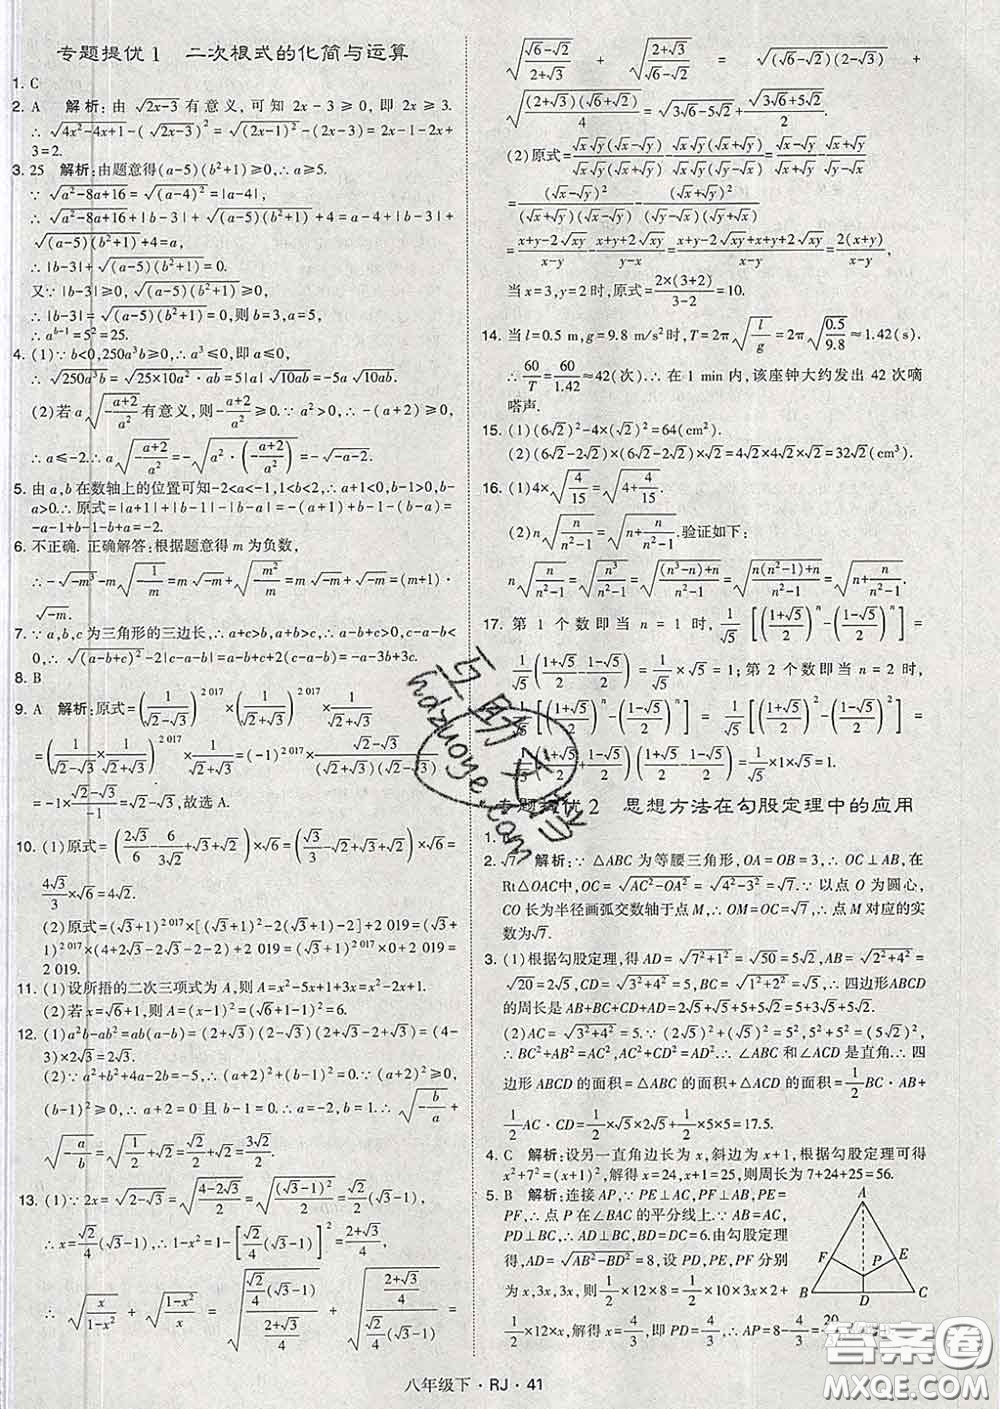 专题提优1 二次根式的化简与运算
1. C
2. A 解析:由√(2x-3)有意义,可知2x-3≥0,即2x≥3.
∴√(4x²-4x+1)-(√(2x-3))²=√((2x-1)²)-(2x-3)=2x-1-2x+
3=2.
3. 25 解析:由题意得(a-5)(b²+1)≥0,∴a≥5.
∵√(a²-8a+16)=√((a-4)²)=|a-4|,
∴√(a²-8a+16)+|b-3|+√((a-5)(b²+1))+4=a-4+|b-3|+
√((a-5)(b²+1))+4=a,
∴|b-3|+√((a-5)(b²+1))=0.
又∵|b-3|≥0,√((a-5)(b²+1))≥0,
∴|b-3|=√((a-5)(b²+1))=0,则b=3,a=5,
∴a^(b-1)=5²=25.
4. (1)∵b<0,250a³b≥0,∴a³≤0,即a≤0.
∴√(250a³b)=√(25×10a²·ab)=5|a|√(10ab)=-5a√(10ab).
(2)若a√(-(a+2)/a²)有意义,则-(a+2)/a²≥0.∵a²>0,∴-(a+2)≥0,
∴a≤-2.∴a√(-(a+2)/a²)=-√(a²·(-(a+2)/a²))=-√(-a-2).
5. 由a,b在数轴上的位置可知-2<a<-1,1<b<2,∴a+1<0,b-1>0,b-
a>0.∴原式=|a+1|+|b-1|-|b-a|=-(a+1)+(b-1)-(b-a)=
-a-1+b-1-b+a=-2.
6. 不正确. 正确解答:根据题意得m为负数,
∴-√(-m³)-m√(-1/m)=m√(-m)+√(-m²/m)=m√(-m)+√(-m)=(m+1)·
√(-m).
7. ∵a,b,c为三角形的三边长,∴a+c>b,a+b>c,∴a-b+c>0,c-a-b<
0.∴√((a-b+c)²)-2|c-a-b|=a-b+c+2c-2a-2b=-a-3b+3c.
8. B
9. A 解析:原式=(1/(√2-√3))^2 017×(1/(√2+√3))^2 017×1/(√2+√3)
=(1/(√2-√3)×1/(√2+√3))^2 017×1/(√2+√3)=(-1)^2 017×(√2-√3)/((√2+√3)(√2-√3))
=-1×(√2-√3)/(-1)=√2-√3,故选A.
10. (1)原式=(2√3/6-6/(3√2)+√2+√3)×√6=(√3/3-√2+√2+√3)×√6=
4√3/3×√6=4√2.
(2)原式=(√3+1)^2 017×[(√3+1)²-2(√3+1)-2]+2 019=(√3+
1)^2 017×(4+2√3-2√3-2-2)+2 019=(√3+1)^2 017×0+2 019=
2 019.
11. (1)设所捂的二次三项式为A,则A=x²-5x+1+3x=x²-2x+1.
(2)若x=√6+1,则A=(x-1)²=(√6+1-1)²=6.
12. (1)a²b-ab²=ab(a-b)=(2+√3)(2-√3)(2+√3-2+√3)=(4-
3)×2√3=2√3.
(2)∵a²+b²+4a-2b=-5,∴(a+2)²+(b-1)²=0.∵(a+2)²≥0,
(b-1)²≥0,∴a+2=0且b-1=0.∴a=-2,b=1.∴√(-b/a)+
√(-a/b)=√(1/2)+√2=√2/2+√2=3√2/2.
13. (1)∵2x=√(2-√3)=√((4-2√3)/2)=√((√3-1)²/2)=√2/2(√3-1),
∴x=√2/4(√3-1),∴1-x²=1-[√2/4(√3-1)]²=(2+√3)/4.
∴√(x/(1-x²))+√((1-x²)/x)=√((√2/4(√3-1))/((2+√3)/4))+√(((2+√3)/4)/(√2/4(√3-1)))=
√((√6-√2)/(2+√3))+√((2+√3)/(√6-√2))=√((√6-√2)(2-√3))+
√((2+√3)(√6+√2)/4)=√(3√6-5√2)+√(3√6+5√2)/2.
(2)原式=√x√y(√x-√y)/(√x√y(√x+√y))+√x√y(√x+√y)/(√x√y(√x-√y))=(√x-√y)/(√x+√y)+(√x+√y)/(√x-√y)
=(√x-√y)²/((√x+√y)(√x-√y))+(√x+√y)²/((√x+√y)(√x-√y))
=(x+y-2√xy)/(x-y)+(x+y+2√xy)/(x-y)=(x+y-2√xy+x+y+2√xy)/(x-y)=2(x+y)/(x-y),
当x=3,y=2时,原式=2×(3+2)/(3-2)=10.
14. 当l=0.5 m,g=9.8 m/s²时,T=2π√(l/g)=2π√(0.5/9.8)≈1.42(s).
∴60/T=60/1.42≈42(次).∴在1 min内,该座钟大约发出42次嘀
嗒声.
15. (1)(6√2)²-4×(√2)²=64(cm²).
(2)(6√2-2√2)×(6√2-2√2)×√2=4√2×4√2×√2=32√2(cm³)
16. (1)4×√(4/15)=√(4+4/15).
(2)n√(n/(n²-1))=√(n+n/(n²-1)).验证如下:
n√(n/(n²-1))=√(n³/(n²-1))=√(((n³-n)+n)/(n²-1))=√((n(n²-1)+n)/(n²-1))=√(n+n/(n²-1)).
17. 第1个数即当n=1时,1/√5[((1+√5)/2)^n-((1-√5)/2)^n]=
1/√5((1+√5)/2-(1-√5)/2)=1/√5×√5=1;第2个数即当n=2时,
1/√5[((1+√5)/2)^n-((1-√5)/2)^n]=1/√5[((1+√5)/2)²-((1-√5)/2)²]=
1/√5((1+√5)/2+(1-√5)/2)((1+√5)/2-(1-√5)/2)=1/√5×1×√5=1.
专题提优2 思想方法在勾股定理中的应用
1.
2. √7 解析:∵△ABC为等腰三角形,OA=OB=3,∴OC⊥AB,在
Rt△OAC中,OC=√(AC²-OA²)=√(4²-3²)=√7.∵以点O为圆心,
CO长为半径画弧交数轴于点M,∴OM=OC=√7,∴点M对应的实
数为√7.
3. (1)根据勾股定理,得AD=√(7²+1²)=√50=5√2,AB=√(2²+4²)=
√20=2√5,CD=√(3²+4²)=5,BC=√(1²+2²)=√5,∴四边形ABCD
的周长是AB+BC+CD+AD=2√5+√5+5+5√2=5+3√5+5√2.
(2)AC=√(3²+4²)=5.∵(2√5)²+(√5)²=5²,5²+5²=(5√2)²,
∴BC²+AB²=AC²,AC²+CD²=AD².∴∠ABC和∠ACD是直角.∴四
边形ABCD的面积=△ABC的面积+△ACD的面积=1/2BC·AB+
1/2AC·CD=1/2×√5×2√5+1/2×5×5=17.5.
4. C 解析:设另一直角边长为x,斜边为x+1.根据勾股定理可得
x²+7²=(x+1)²,解得x=24,x+1=25.则周长为7+24+25=56.
5. B 解析:连接AP,∵PE⊥AC,PF⊥AB,PE=
PF,∴点P在∠BAC的平分线上.∵AB=AC=
10,∴AD⊥BC,BD=DC=6.由勾股定理
得,AD=√(AB²-BD²)=8,设PD,PE,PF分别
为x,x,x,则1/2×12×8=1/2×10×x+1/2×10×x+
1/2×12×x,解得x=4/3,即PD=4/3,∴AP=8-4/3=20/3
A
F
E
P
B
D
C
互助文雪
hdzuoye.com
答案圈
MXQE.COM
八年级下·RJ·41